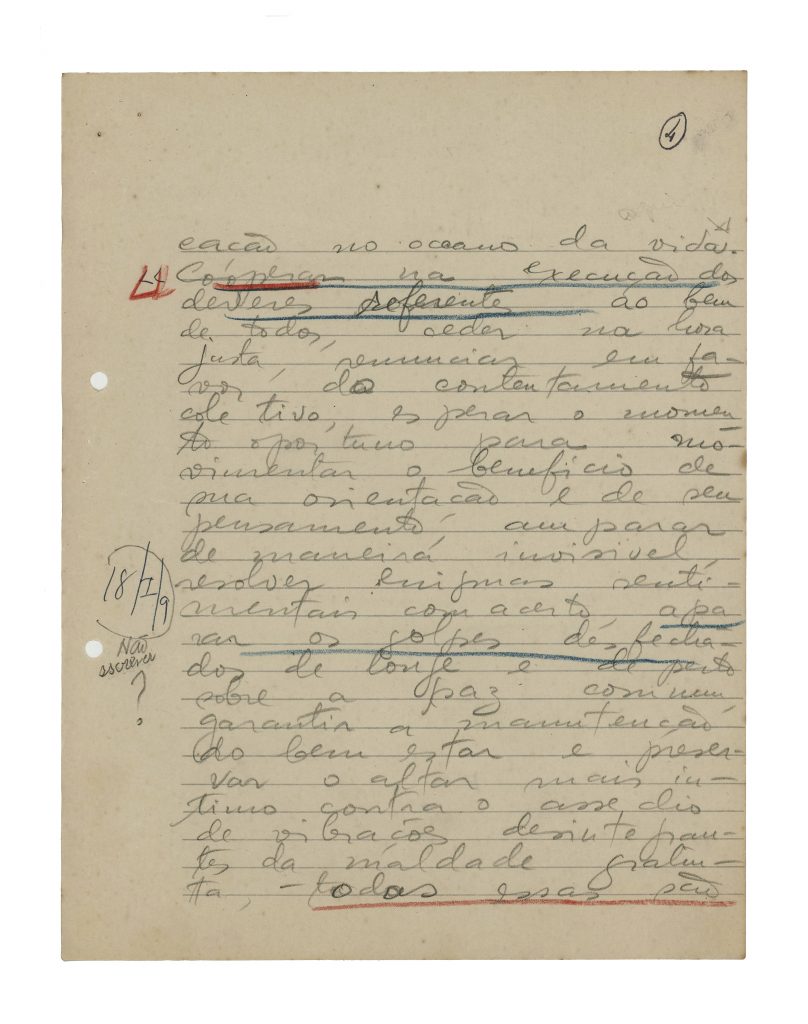 4
cação no oceano da vida.
4 Coóperar na execução dos
deveres referentes ao bem
de todos, ceder na hora
justa, renunciar em fa-
vor do contentamento
coletivo, esperar o momen
to oportuno para mo-
vimentar o benefício de
sua orientação e de seu
pensamento, amparar
de maneira invisivel,
resolver enigmas senti-
mentais com acerto, apa
rar os golpes desfecha-
dos de longe e de perto
sobre a paz commum,
garantir a manutenção
do bem estar e preser-
var o altar mais in-
timo contra o assedio
de vibrações desintegran-
tes da maldade gratui-
ta, - todas essas são
18/I/9
Não
escrever
?